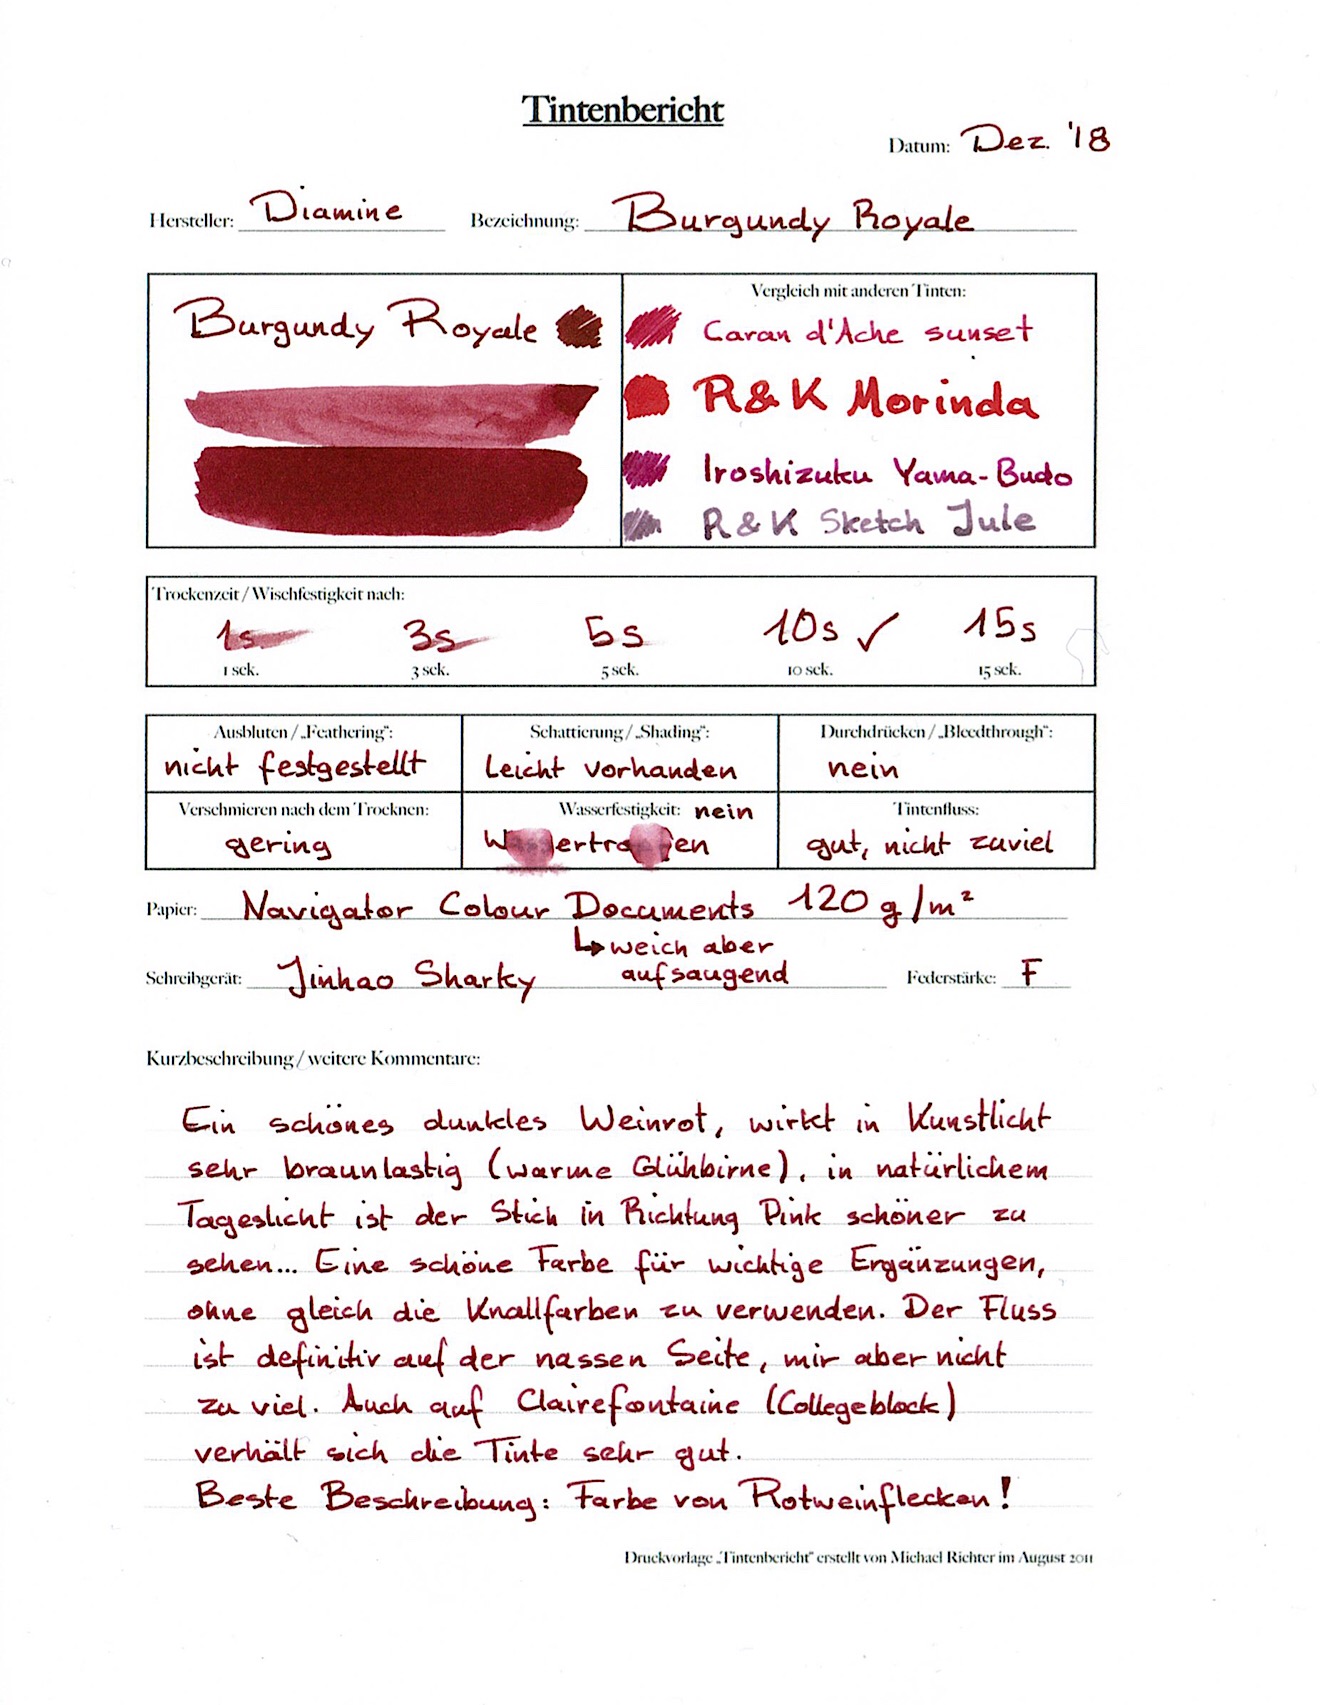 Tintenbericht
Datum: Dez. '18
Hersteller: Diamine Bezeichnung: Burgundy Royale
Burgundy Royale
Vergleich mit anderen Tinten:
Caran d'Ache sunset
R&K Morinda
Iroshizuku Yama-Budo
R&K Sketch Jule
Trockenzeit / Wischfestigkeit nach:
1s 3s 5s 10s ✓ 15s
1 sek. 3 sek. 5 sek. 10 sek. 15 sek.
Ausbluten / „Feathering“: Schattierung / „Shading“: Durchdrücken / „Bleedthrough“:
nicht festgestellt Leicht vorhanden nein
Verschmieren nach dem Trocknen: Wasserfestigkeit: nein Tintenfluss:
gering Wassertropfen gut, nicht zuviel
Papier: Navigator Colour Documents 120 g/m²
↳ weich aber
Schreibgerät: Jinhao Sharky aufsaugend Federstärke: F
Kurzbeschreibung / weitere Kommentare:
Ein schönes dunkles Weinrot, wirkt in Kunstlicht
sehr braunlastig (warme Glühbirne), in natürlichem
Tageslicht ist der Stich in Richtung Pink schöner zu
sehen... Eine schöne Farbe für wichtige Ergänzungen,
ohne gleich die Knallfarben zu verwenden. Der Fluss
ist definitiv auf der nassen Seite, mir aber nicht
zu viel. Auch auf Clairefontaine (Collegeblock)
verhält sich die Tinte sehr gut.
Beste Beschreibung: Farbe von Rotweinflecken!
Druckvorlage „Tintenbericht“ erstellt von Michael Richter im August 2011